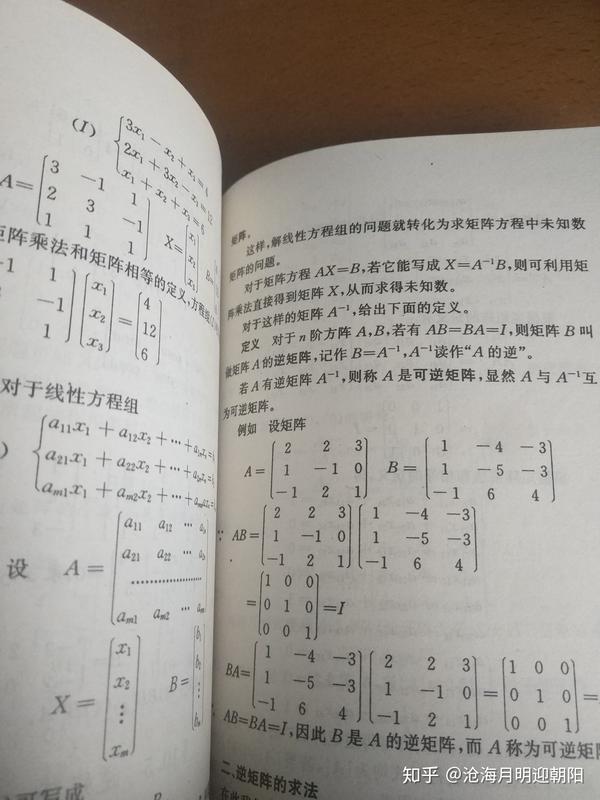 (I) { 3x₁ − x₂ + x₃ = 4
2x₁ + 3x₂ − x₃ = 12
x₁ + x₂ + x₃ = 6
A = [ 3 −1 1
2 3 −1
1 1 1 ] X = [ x₁
x₂
x₃ ] B =
矩阵乘法和矩阵相等的定义,方程组
−1 1
−1
1 [ x₁
x₂
x₃ ] = [ 4
12
6 ]
对于线性方程组
{ a₁₁x₁ + a₁₂x₂ + ⋯ + a₁ₙxₙ =
a₂₁x₁ + a₂₂x₂ + ⋯ + a₂ₙxₙ =
aₘ₁x₁ + aₘ₂x₂ + ⋯ + aₘₙxₙ =
设 A = [ a₁₁ a₁₂ ⋯ a₁ₙ
a₂₁ a₂₂ ⋯ a₂ₙ
⋯⋯⋯⋯⋯⋯
aₘ₁ aₘ₂ ⋯ aₘ
X = [ x₁
x₂
⋮
xₘ ] B = [ b₁
b₂
⋮
可写成
矩阵。
这样,解线性方程组的问题就转化为求矩阵方程中未知数
矩阵的问题。
对于矩阵方程 AX=B,若它能写成 X=A⁻¹B,则可利用矩
阵乘法直接得到矩阵 X,从而求得未知数。
对于这样的矩阵 A⁻¹,给出下面的定义。
定义 对于 n 阶方阵 A,B,若有 AB=BA=I,则矩阵 B 叫
做矩阵 A 的逆矩阵,记作 B=A⁻¹,A⁻¹读作“A 的逆”。
若 A 有逆矩阵 A⁻¹,则称 A 是可逆矩阵,显然 A 与 A⁻¹互
为可逆矩阵。
例如 设矩阵
A = [ 2 2 3
1 −1 0
−1 2 1 ] B = [ 1 −4 −3
1 −5 −3
−1 6 4 ]
∵ AB = [ 2 2 3
1 −1 0
−1 2 1 ] [ 1 −4 −3
1 −5 −3
−1 6 4 ]
= [ 1 0 0
0 1 0
0 0 1 ] = I
BA = [ 1 −4 −3
1 −5 −3
−1 6 4 ] [ 2 2 3
1 −1 0
−1 2 1 ] = [ 1 0 0
0 1 0
0 0 1 ] =
AB=BA=I,因此 B 是 A 的逆矩阵,而 A 称为可逆矩
二、逆矩阵的求法
知乎 @沧海月明迎朝阳